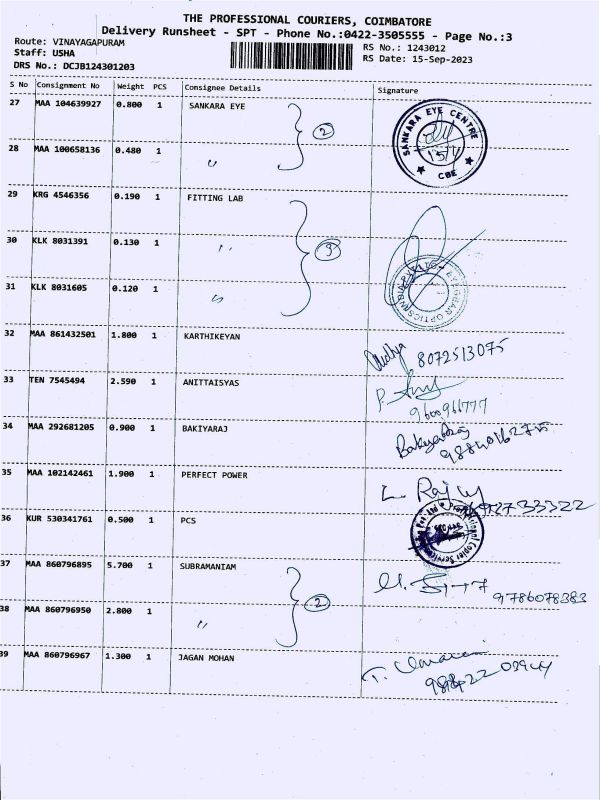 THE PROFESSIONAL COURIERS, COIMBATORE
Delivery Runsheet - SPT - Phone No.:0422-3505555 - Page No.:3
Route: VINAYAGAPURAM
Staff: USHA
DRS No.: DCJB124301203
RS No.: 1243012
RS Date: 15-Sep-2023
S No Consignment No Weight PCS Consignee Details Signature
27 MAA 104639927 0.800 1 SANKARA EYE
2
SANKARA EYE CENTRE
CBE
28 MAA 100658136 0.480 1 "
29 KRG 4546356 0.190 1 FITTING LAB
3
30 KLK 8031391 0.130 1 "
31 KLK 8031605 0.120 1 "
32 MAA 861432501 1.800 1 KARTHIKEYAN
8072513075
33 TEN 7545494 2.590 1 ANITTAISYAS
9600966777
34 MAA 292681205 0.900 1 BAKIYARAJ
Bakiyaraj
35 MAA 102142461 1.900 1 PERFECT POWER
36 KUR 530341761 0.500 1 PCS
37 MAA 860796895 5.700 1 SUBRAMANIAM
9786078383
2
38 MAA 860796950 2.800 1 "
39 MAA 860796967 1.300 1 JAGAN MOHAN